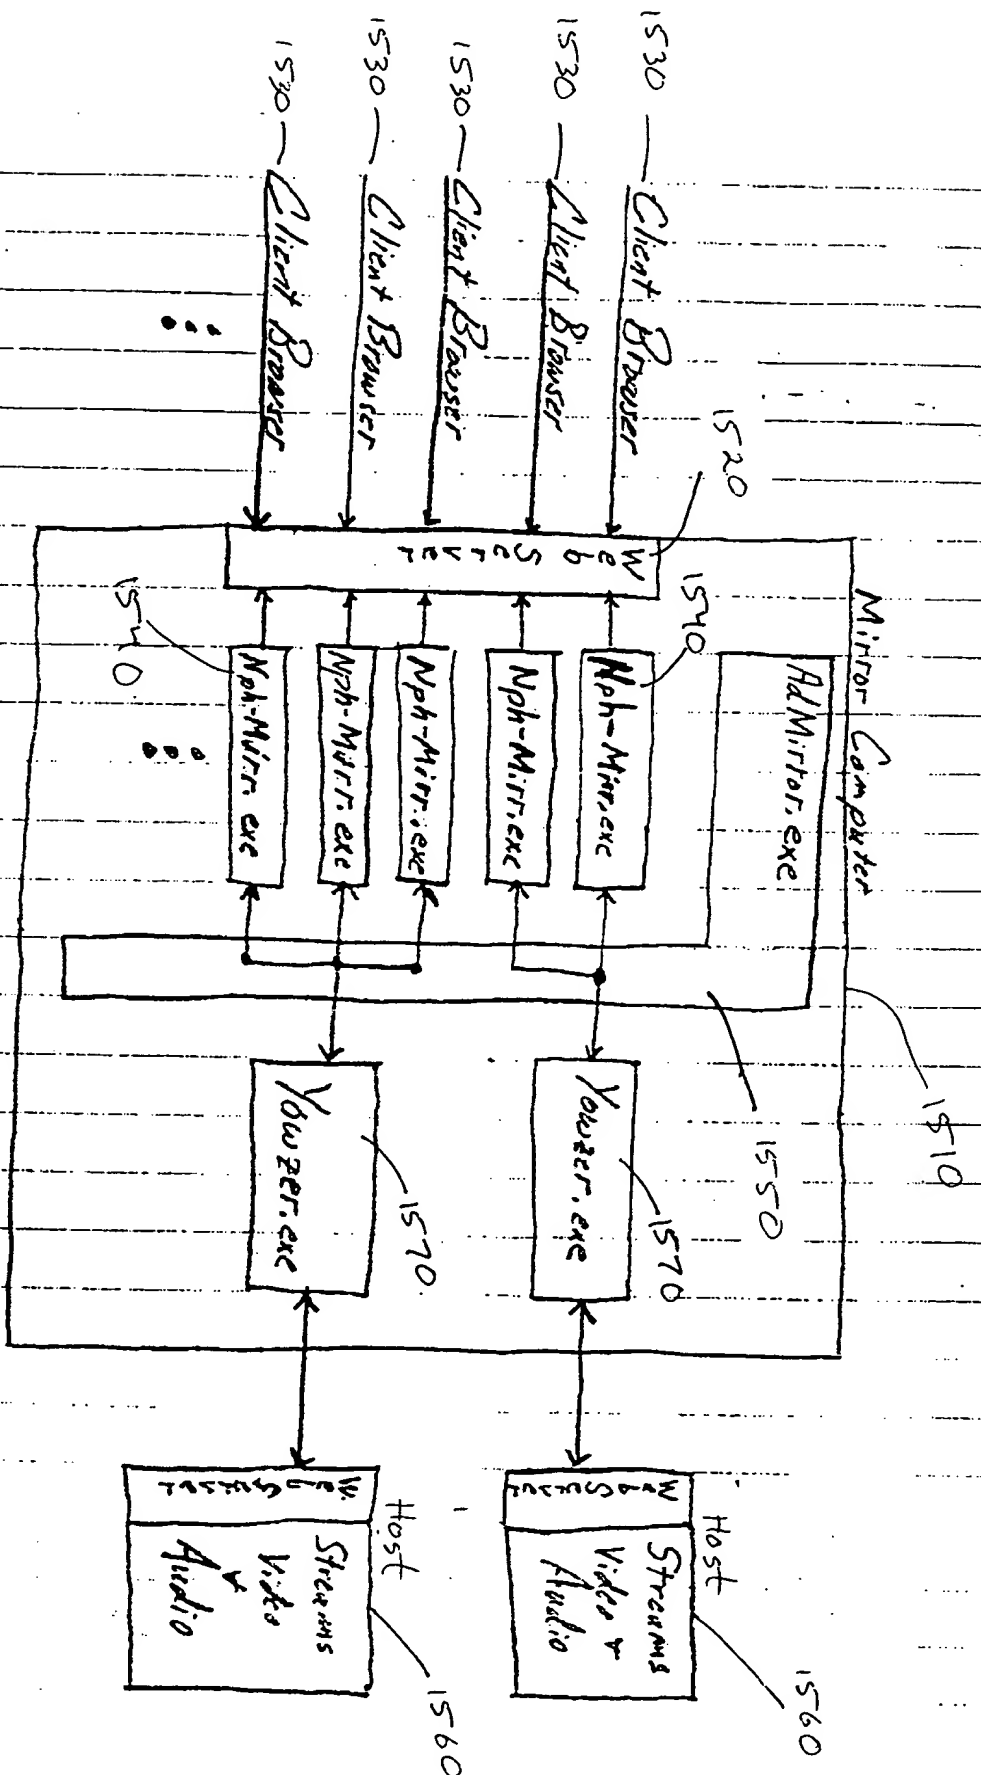 1530 — Client Browser
1530 — Client Browser
1530 — Client Browser
1530 — Client Browser
1530 — Client Browser
...
1520
Web Server
Mirror Computer
1510
AdMirror.exe
1550
1540
Nph-Mirr.exe
Nph-Mirr.exe
Nph-Mirr.exe
Nph-Mirr.exe
Nph-Mirr.exe
1540
...
Yowzer.exe
1570
Yowzer.exe
1570
Host
Web Server
Streams
Video &
Audio
1560
Host
Web Server
Streams
Video
&
Audio
1560